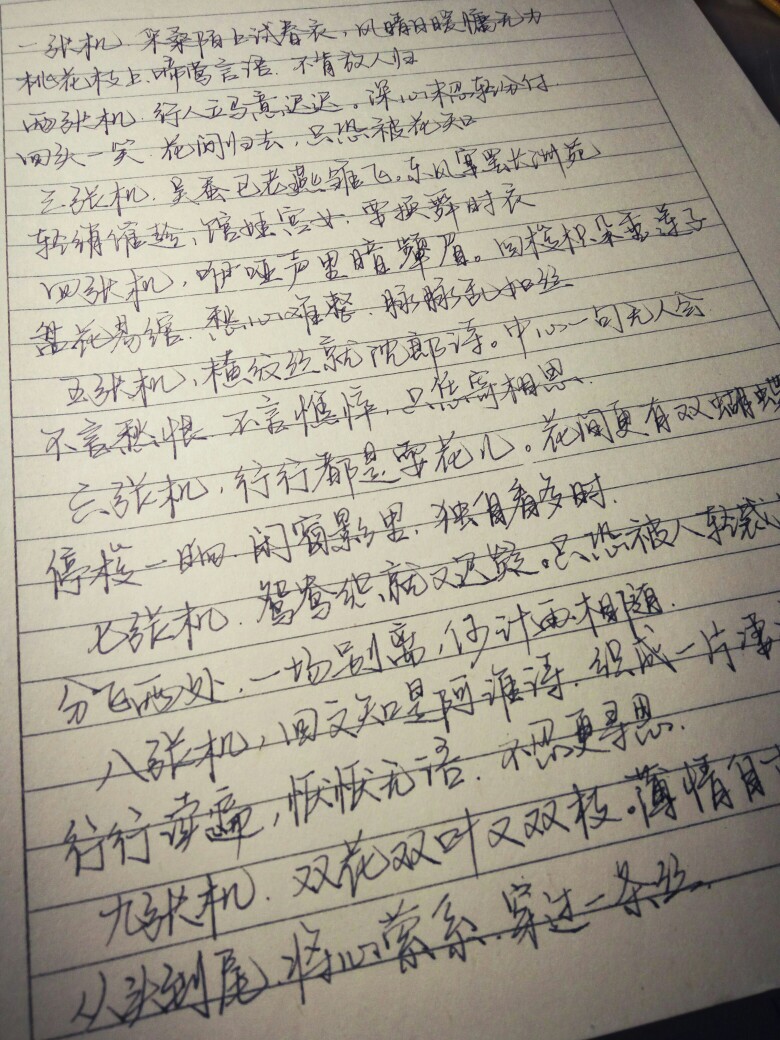 一张机.采桑陌上试春衣,风晴日暖慵无力
桃花枝上.啼莺言语.不肯放人归
两张机.行人立马意迟迟。深心未忍轻分付
回头一笑.花间归去,只恐被花知
三张机.吴蚕已老燕雏飞,东风宴罢长洲苑
轻绡催趁,馆娃宫女.要换舞时衣
四张机,咿哑声里暗颦眉。回梭织朵垂莲子
盘花易绾.愁心难整.脉脉乱如丝
五张机,横纹织就沈郎诗。中心一句无人会
不言愁恨.不言憔悴,只恁寄相思.
六张机,行行都是耍花儿。花间更有双蝴蝶
停梭一晌.闲窗影里.独自看多时.
七张机.鸳鸯织就又迟疑。只恐被人轻裁
分飞两处.一场别离,何计再相随.
八张机,回文知是阿谁诗.织成一片凄
行行读遍,恹恹无语.不忍更寻思.
九张机.双花双叶又双枝。薄情自
从头到尾.将心萦系.穿过一条丝.